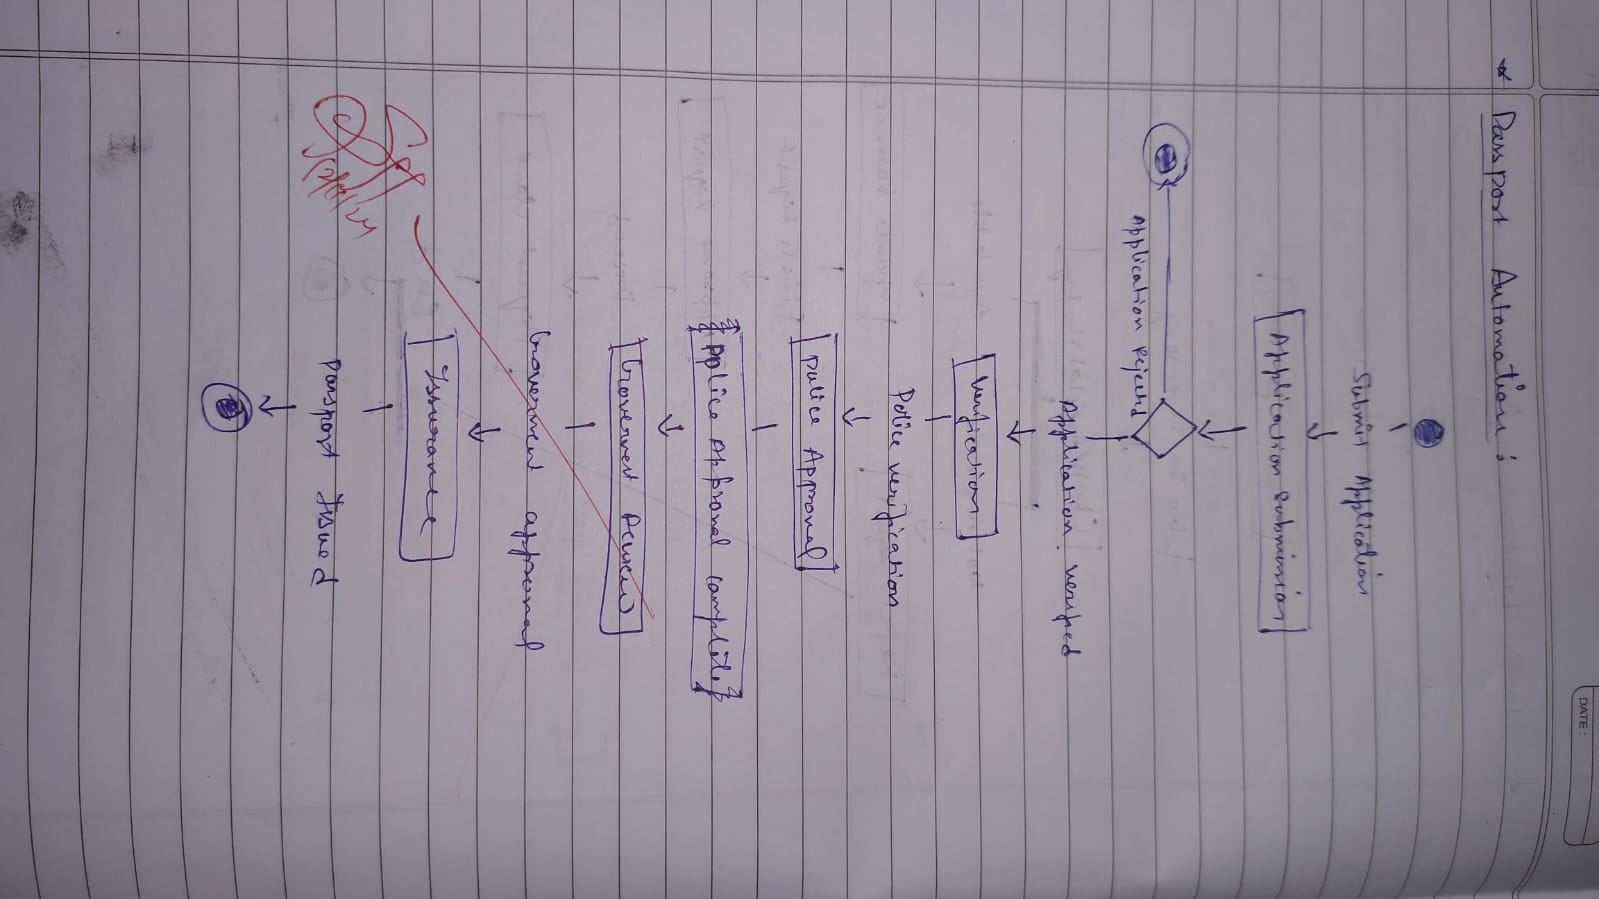 DATE :
* Passport Automation :
Submit Application
Application Submission
Application Rejected
Application verified
Verification
Police verification
Police Approval
Applica Approval complete
Goverment Review
Goverment approval
Issurance
Passport Issued